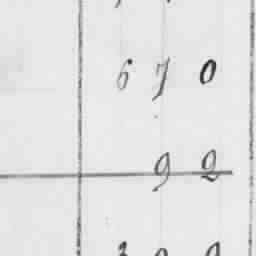 670
92